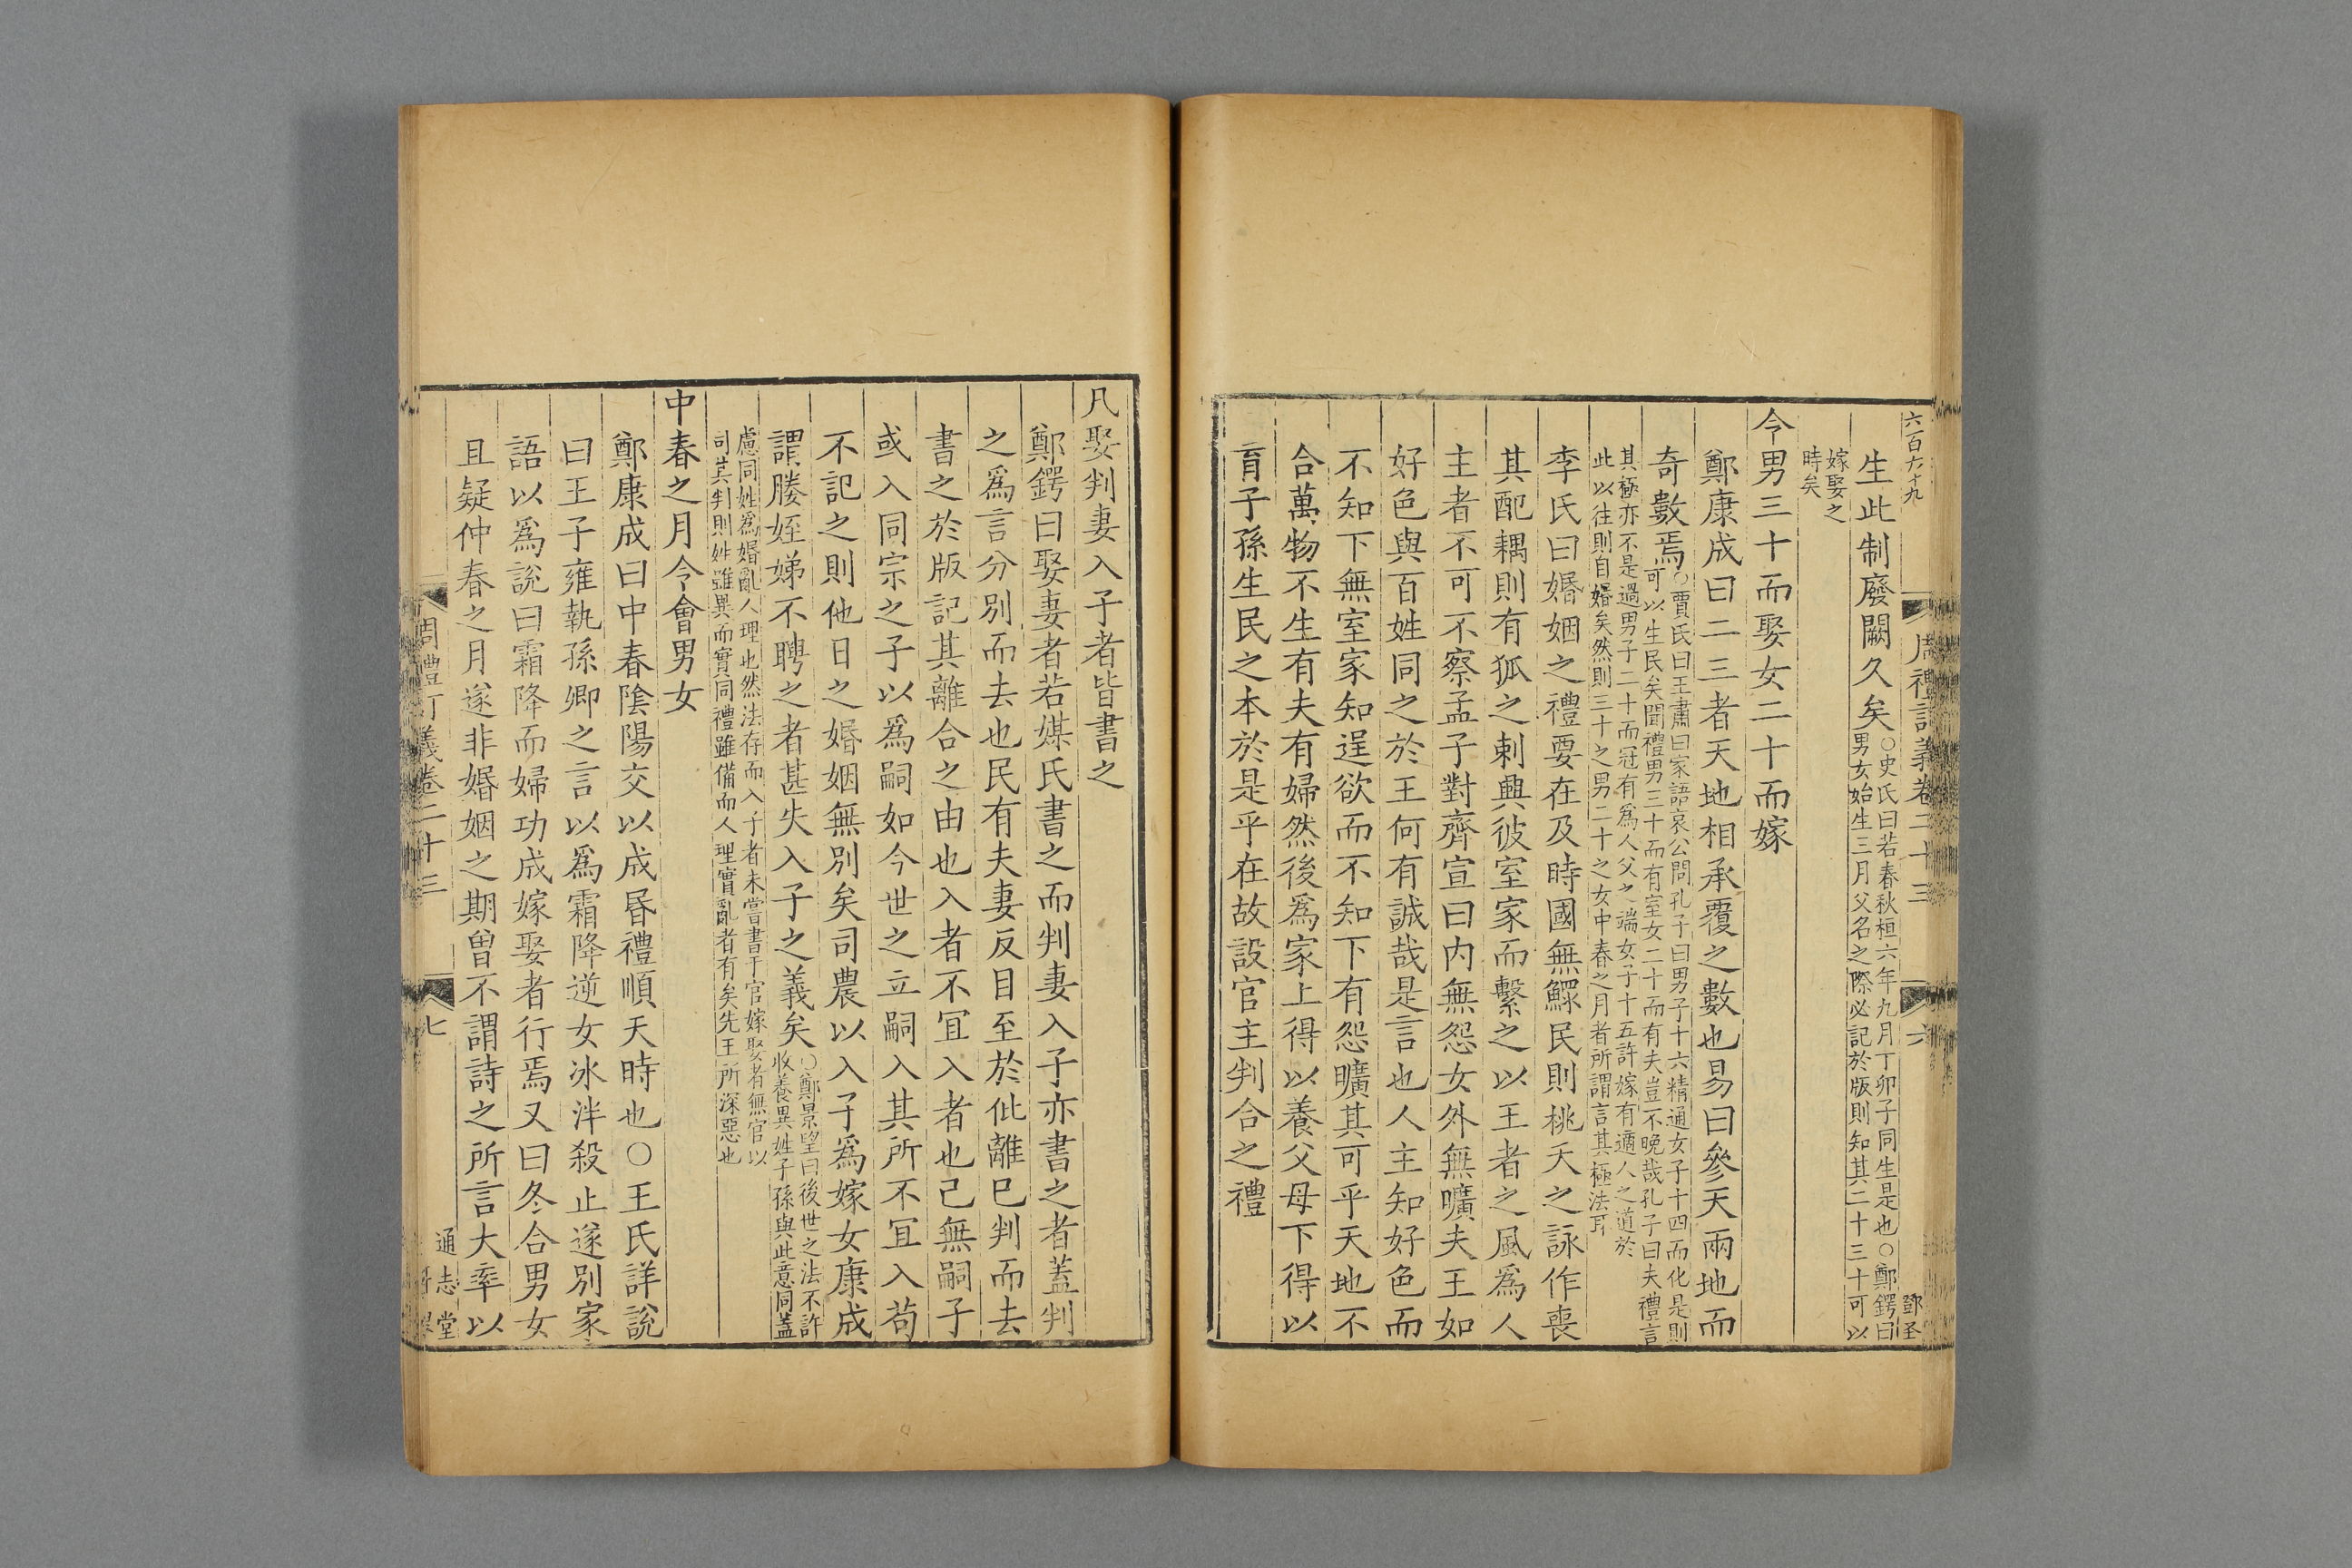 六百六十九
周禮訂義卷二十三
六
鄧圣
生此制廢闕久矣○史氏曰若春秋桓六年九月丁卯子同生是也○鄭鍔曰
男女始生三月父名之際必記於版則知其二十三十可以
嫁娶之
時矣
令男三十而娶女二十而嫁
鄭康成曰二三者天地相承覆之數也易曰參天兩地而
奇數焉○賈氏曰王肅曰家語哀公問孔子曰男子十六精通女子十四而化是則
可以生民矣聞禮男三十而有室女二十而有夫豈不晚哉孔子曰夫禮言
其極亦不是過男子二十而冠有為人父之端女子十五許嫁有適人之道於
此以往則自婚矣然則三十之男二十之女中春之月者所謂言其極法耳
李氏曰婚姻之禮要在及時國無鰥民則桃夭之詠作喪
其配耦則有狐之刺興彼室家而繫之以王者之風為人
主者不可不察孟子對齊宣曰内無怨女外無曠夫王如
好色與百姓同之於王何有誠哉是言也人主知好色而
不知下無室家知逞欲而不知下有怨曠其可乎天地不
合萬物不生有夫有婦然後為家上得以養父母下得以
育子孫生民之本於是乎在故設官主判合之禮
凡娶判妻入子者皆書之
鄭鍔曰娶妻者若媒氏書之而判妻入子亦書之者蓋判
之為言分別而去也民有夫妻反目至於仳離已判而去
書之於版記其離合之由也入者不宜入者也己無嗣子
或入同宗之子以為嗣如今世之立嗣入其所不宜入苟
不記之則他日之婚姻無別矣司農以入子為嫁女康成
謂媵姪娣不聘之者甚失入子之義矣○鄭景望曰後世之法不許
收養異姓子孫與此意同蓋
慮同姓為婚亂人理也然法存而入子者未嘗書于官嫁娶者無官以
司其判則姓雖異而實同禮雖備而人理實亂者有矣先王所深惡也
中春之月令會男女
鄭康成曰中春陰陽交以成昬禮順天時也○王氏詳說
曰王子雍執孫卿之言以為霜降逆女冰泮殺止遂別家
語以為說曰霜降而婦功成嫁娶者行焉又曰冬合男女
且疑仲春之月遂非婚姻之期曾不謂詩之所言大率以
周禮訂義卷二十三
七
通志堂